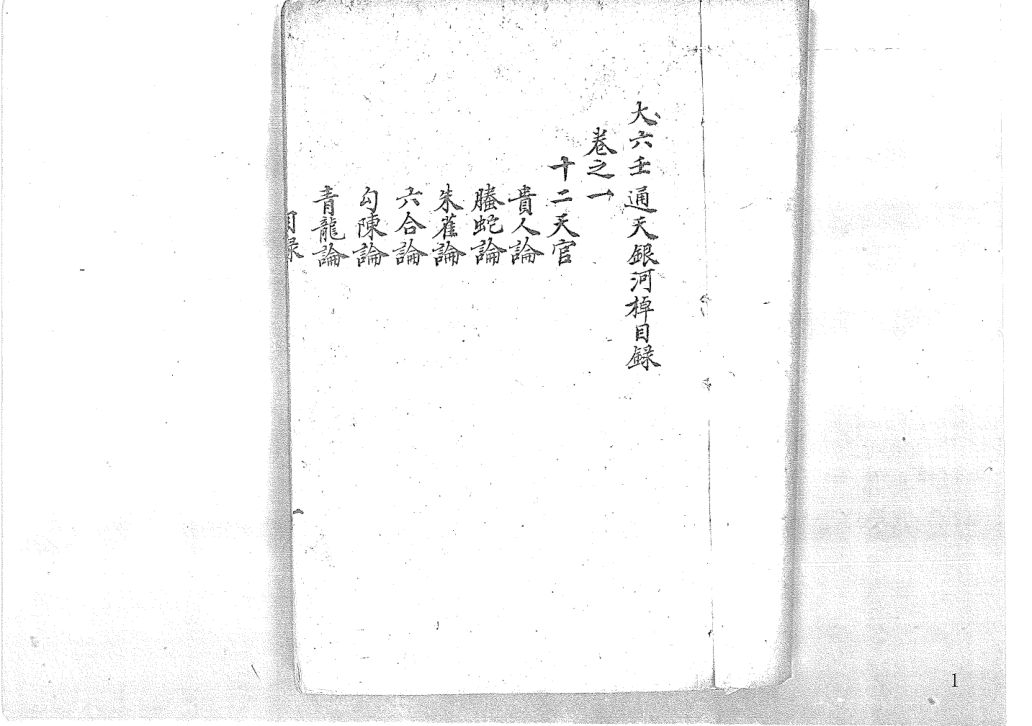 大六壬通天銀河棹目録
卷之一
十二天官
貴人論
螣蛇論
朱雀論
六合論
勾陳論
青龍論
目録
1